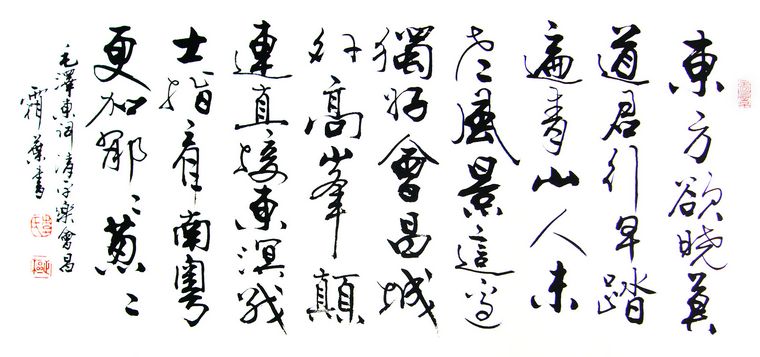 東方欲曉莫
道君行早踏
遍青山人未
老風景這邊
獨好會昌城
外高峯顛
連直接東溟戰
士指看南粵
更加郁〻葱〻
毛澤東詞清平樂會昌
霜葉書